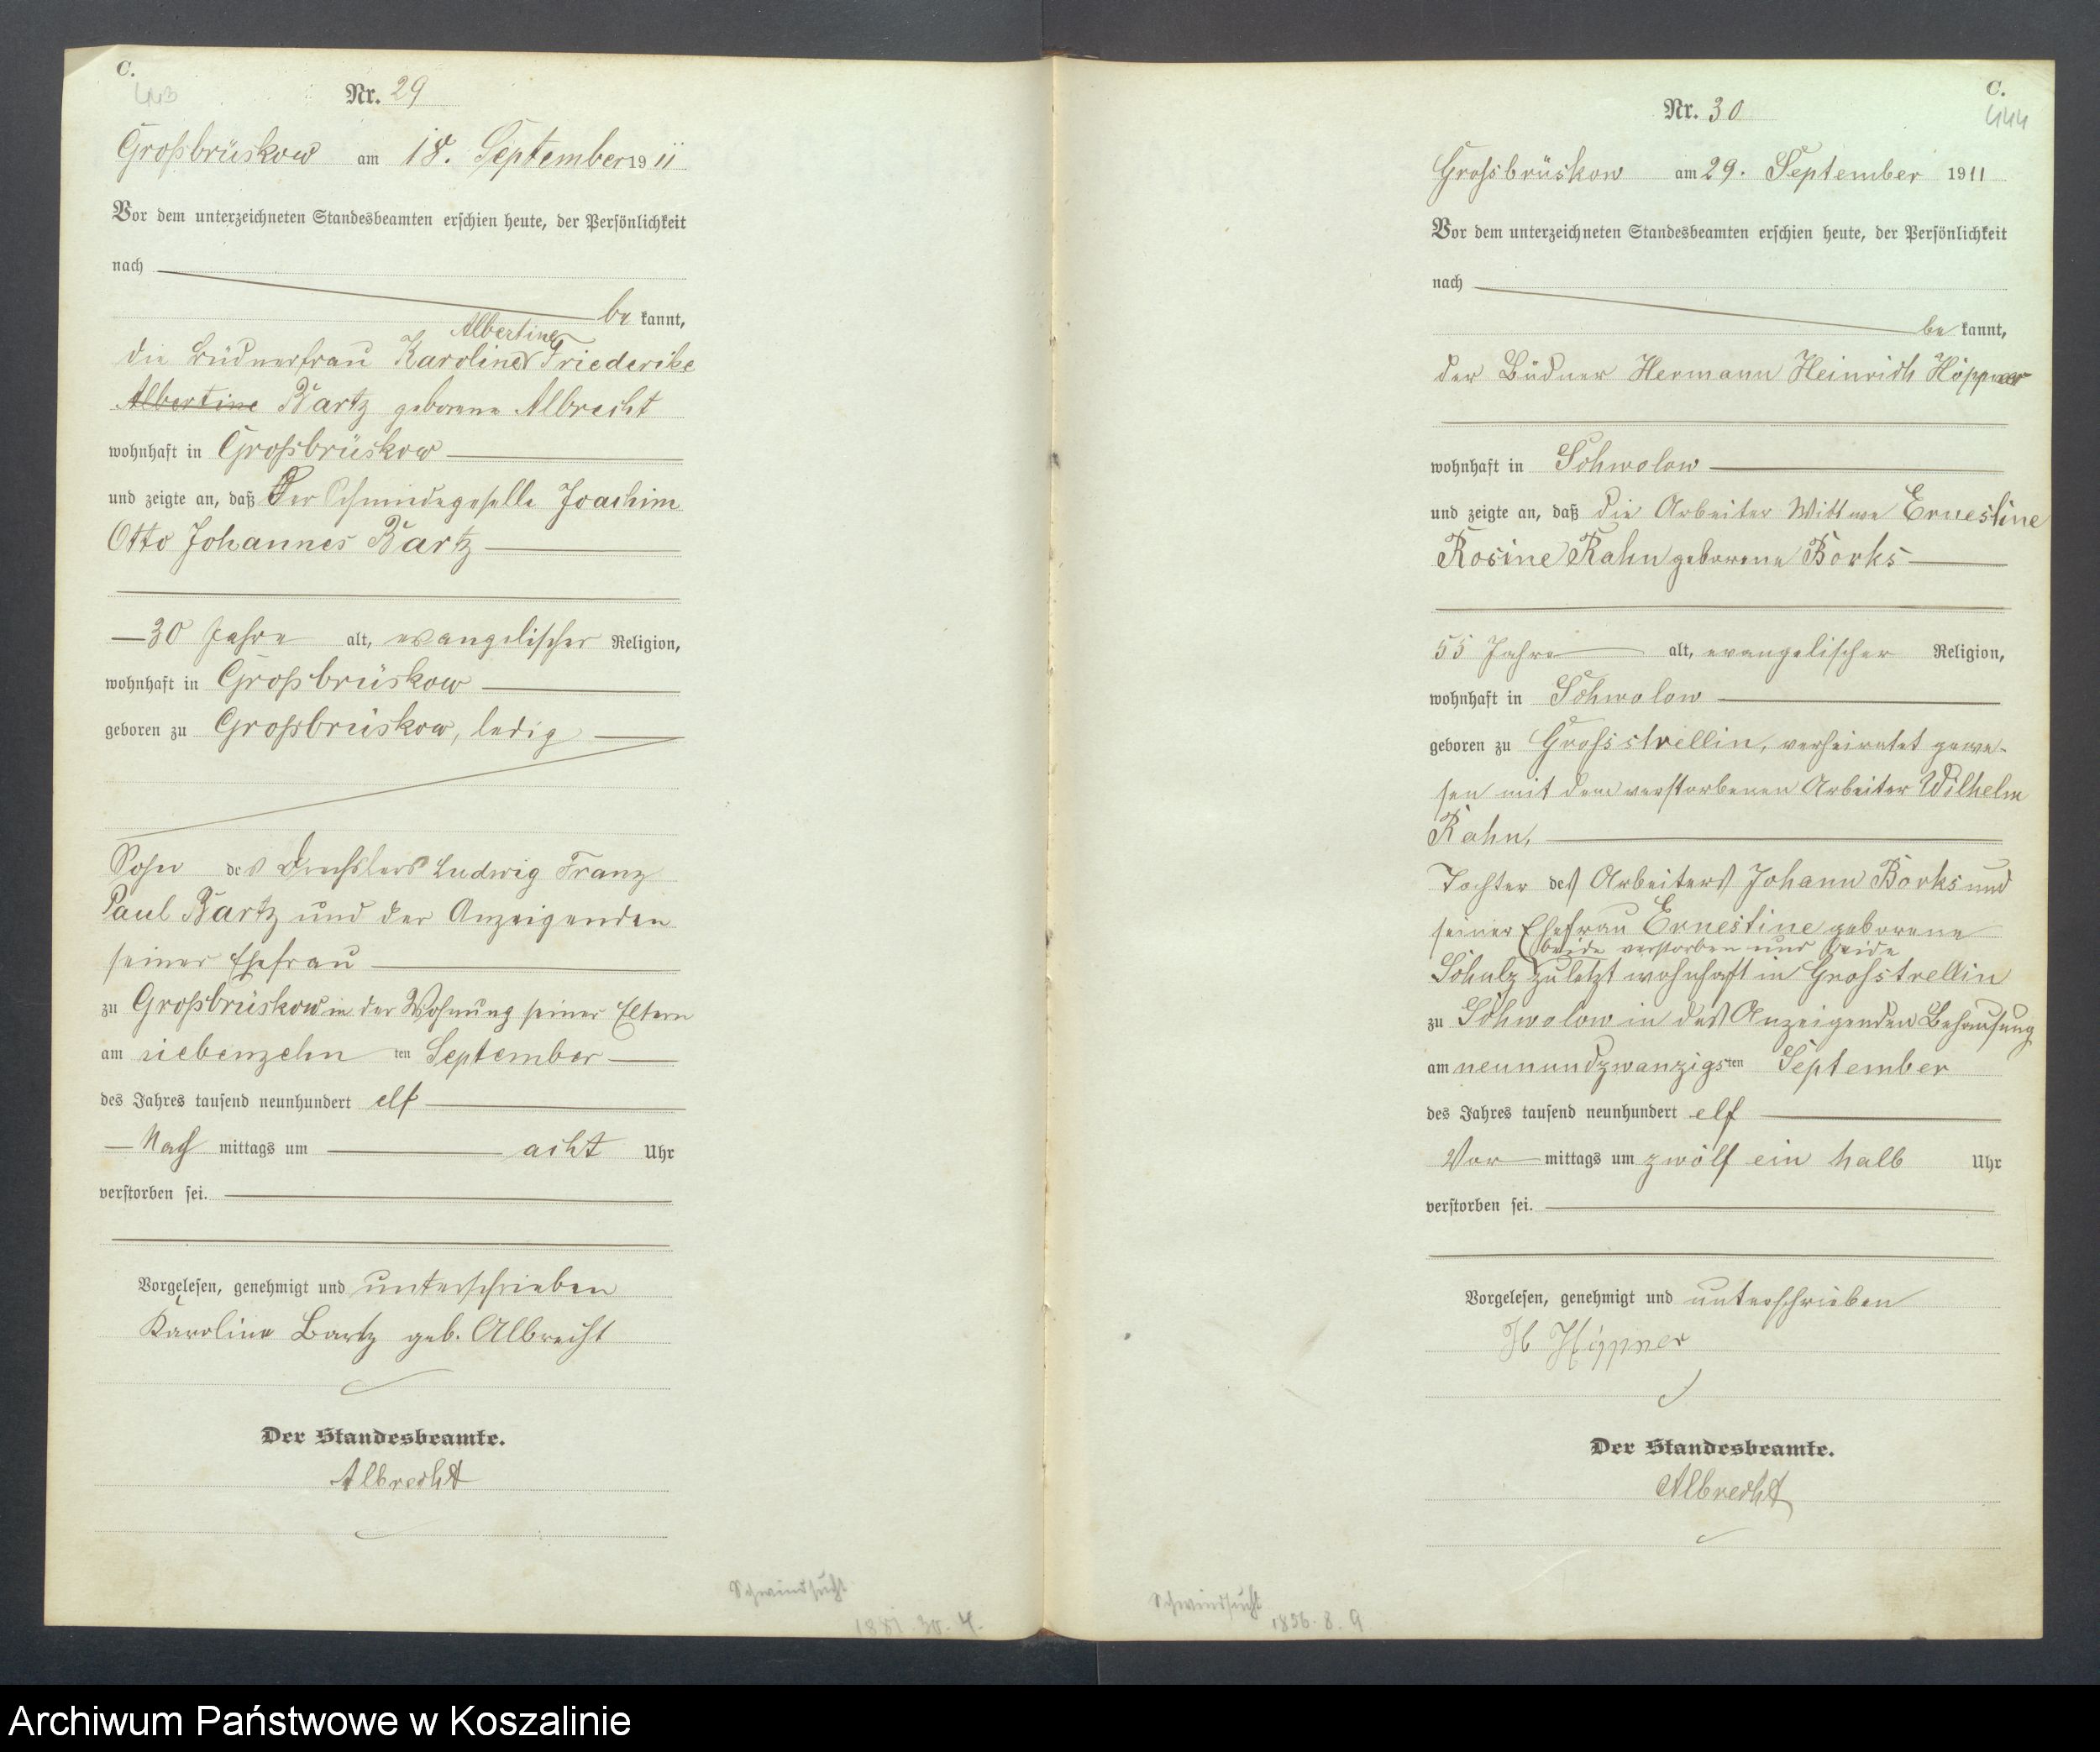 C.
443
Nr. 29
Großbrüskow am 18. September 1911
Vor dem unterzeichneten Standesbeamten erschien heute, der Persönlichkeit
nach
be kannt,
Albertine
die Büdnerfrau Karoline Friederike
Albertine Bartz geborene Albrecht
wohnhaft in Großbrüskow
und zeigte an, daß der Schmiedegeselle Joachim
Otto Johannes Bartz
30 Jahre alt, evangelischer Religion,
wohnhaft in Großbrüskow
geboren zu Großbrüskow, ledig
Sohn des Drechslers Ludwig Franz
Paul Bartz und der Anzeigenden
seiner Ehefrau
zu Großbrüskow in der Wohnung seiner Eltern
am siebenzehn ten September
des Jahres tausend neunhundert elf
Nach mittags um acht Uhr
verstorben sei.
Vorgelesen, genehmigt und unterschrieben
Karoline Bartz geb. Albrecht
Der Standesbeamte.
Albrecht
Schwindsucht
1881. 30. 4.
C.
444
Nr. 30
Grossbrüskow am 29. September 1911
Vor dem unterzeichneten Standesbeamten erschien heute, der Persönlichkeit
nach
be kannt,
der Büdner Hermann Heinrich Höppner
wohnhaft in Schwolow
und zeigte an, daß die Arbeiter Wittwe Ernestine
Rosine Rahn geborene Borks
55 Jahre alt, evangelischer Religion,
wohnhaft in Schwolow
geboren zu Grossstrellin, verheiratet gewe-
sen mit dem verstorbenen Arbeiter Wilhelm
Rahn,
Tochter des Arbeiters Johann Borks und
seiner Ehefrau Ernestine geborene
beide verstorben und beide
Schulz zuletzt wohnhaft in Grosstrellin
zu Schwolow in des Anzeigenden Behausung
am neunundzwanzigsten September
des Jahres tausend neunhundert elf
Vor mittags um zwölf ein halb Uhr
verstorben sei.
Vorgelesen, genehmigt und unterschrieben
H Höppner
Der Standesbeamte.
Albrecht
Schwindsucht
1856. 8. 9
Archiwum Państwowe w Koszalinie